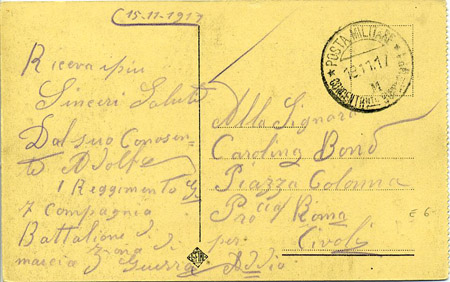 15-11-1917
Riceva i più
Sinceri Saluti
Dal suo Conoscen-
te Adolfo
1 Reggimento
7 Compagnia
Battaglione di
marcia Zona di
Guerra
POSTA MILITARE
18.11.17
M
Alla Signora
Carolina Bond
Piazza Colonna
Pro cia di Roma
per Tivoli
Addio
E 6